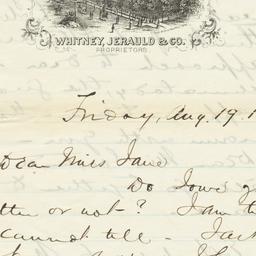 WHITNEY, JERAULD & CO.
PROPRIETORS.
Friday, Aug. 19. 1
Dear Miss Jane
Do I owe y
tter or not? I am t
cannot tell –